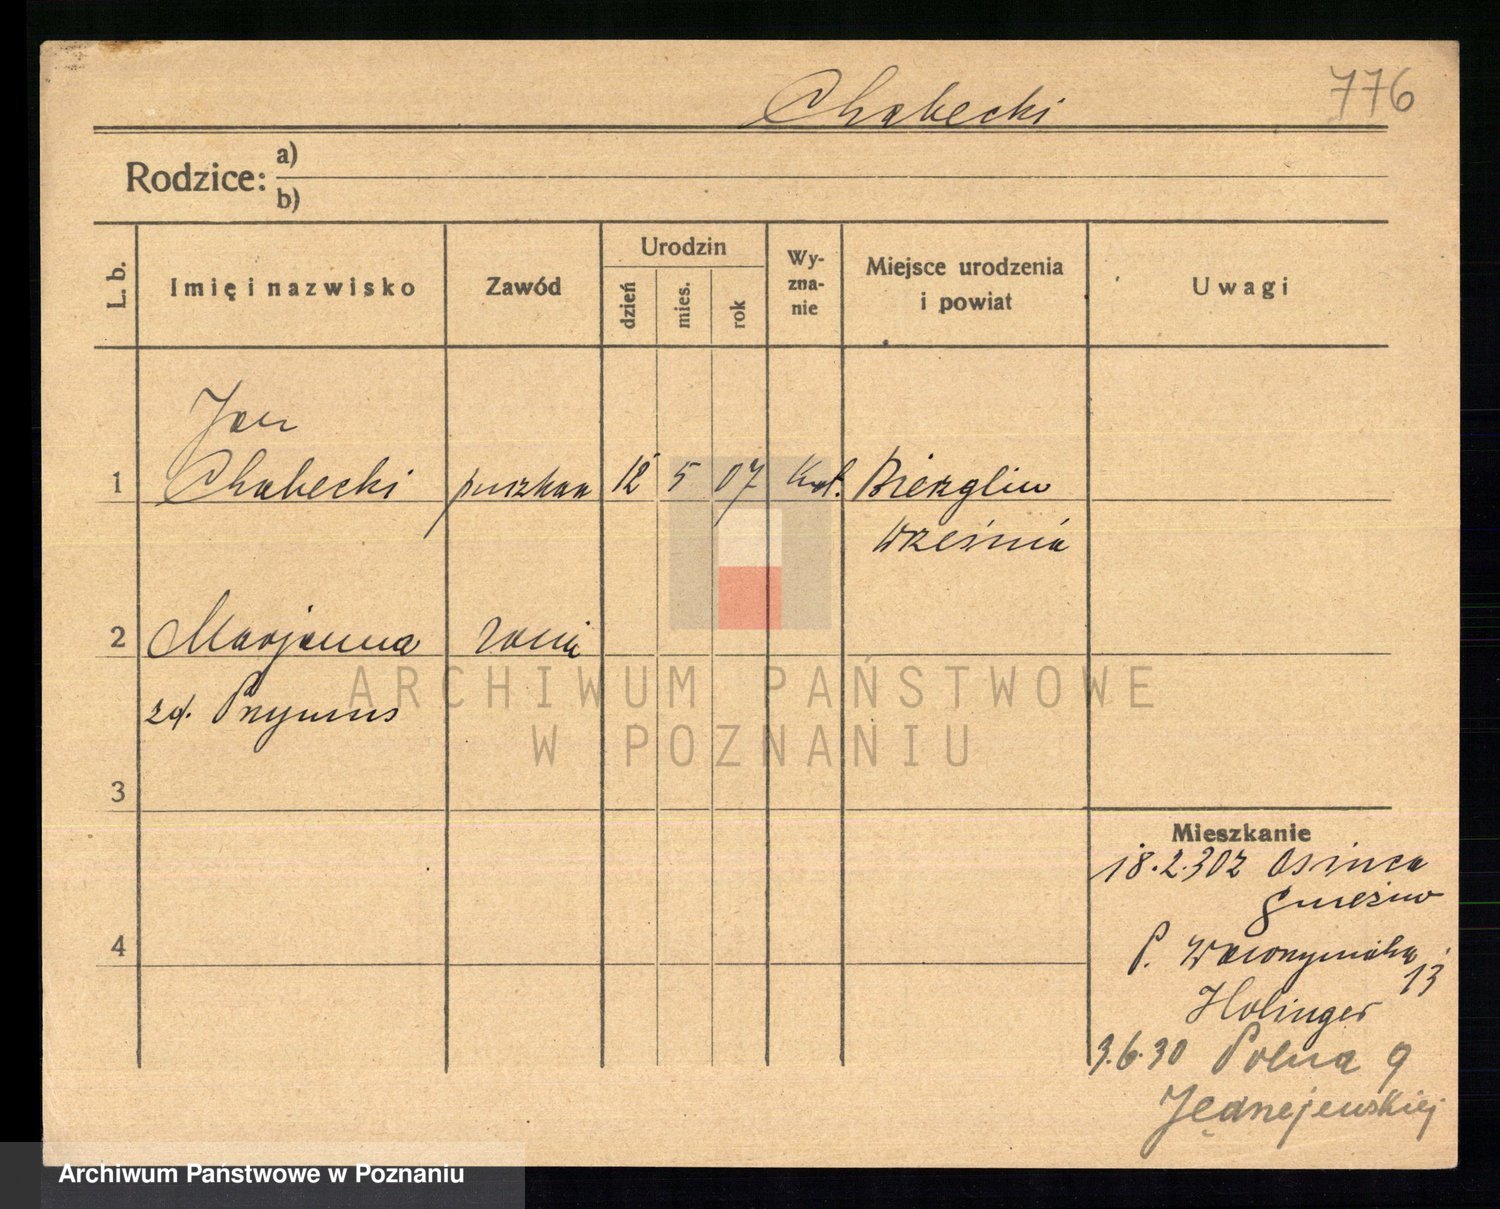 Chabecki
776
Rodzice:
a)
b)
L. b.
Imię i nazwisko
Zawód
Urodzin
dzień
mies.
rok
Wy-
zna-
nie
Miejsce urodzenia
i powiat
Uwagi
Jan
1 Chabecki 12 5 07 Kat. Bierglin
Września
2 Marjanna żona
zd. Prymus
3
4
Mieszkanie
18.2.30
Gniezno
P. 13
Holinger
3.6.30 Polna 9
Jędrzejewskiej
ARCHIWUM PAŃSTWOWE
W POZNANIU
Archiwum Państwowe w Poznaniu